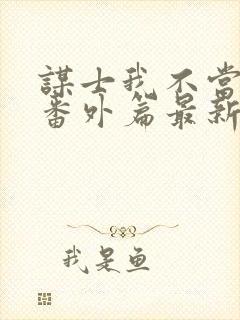 謀士我不當
番外篇最新
我是魚